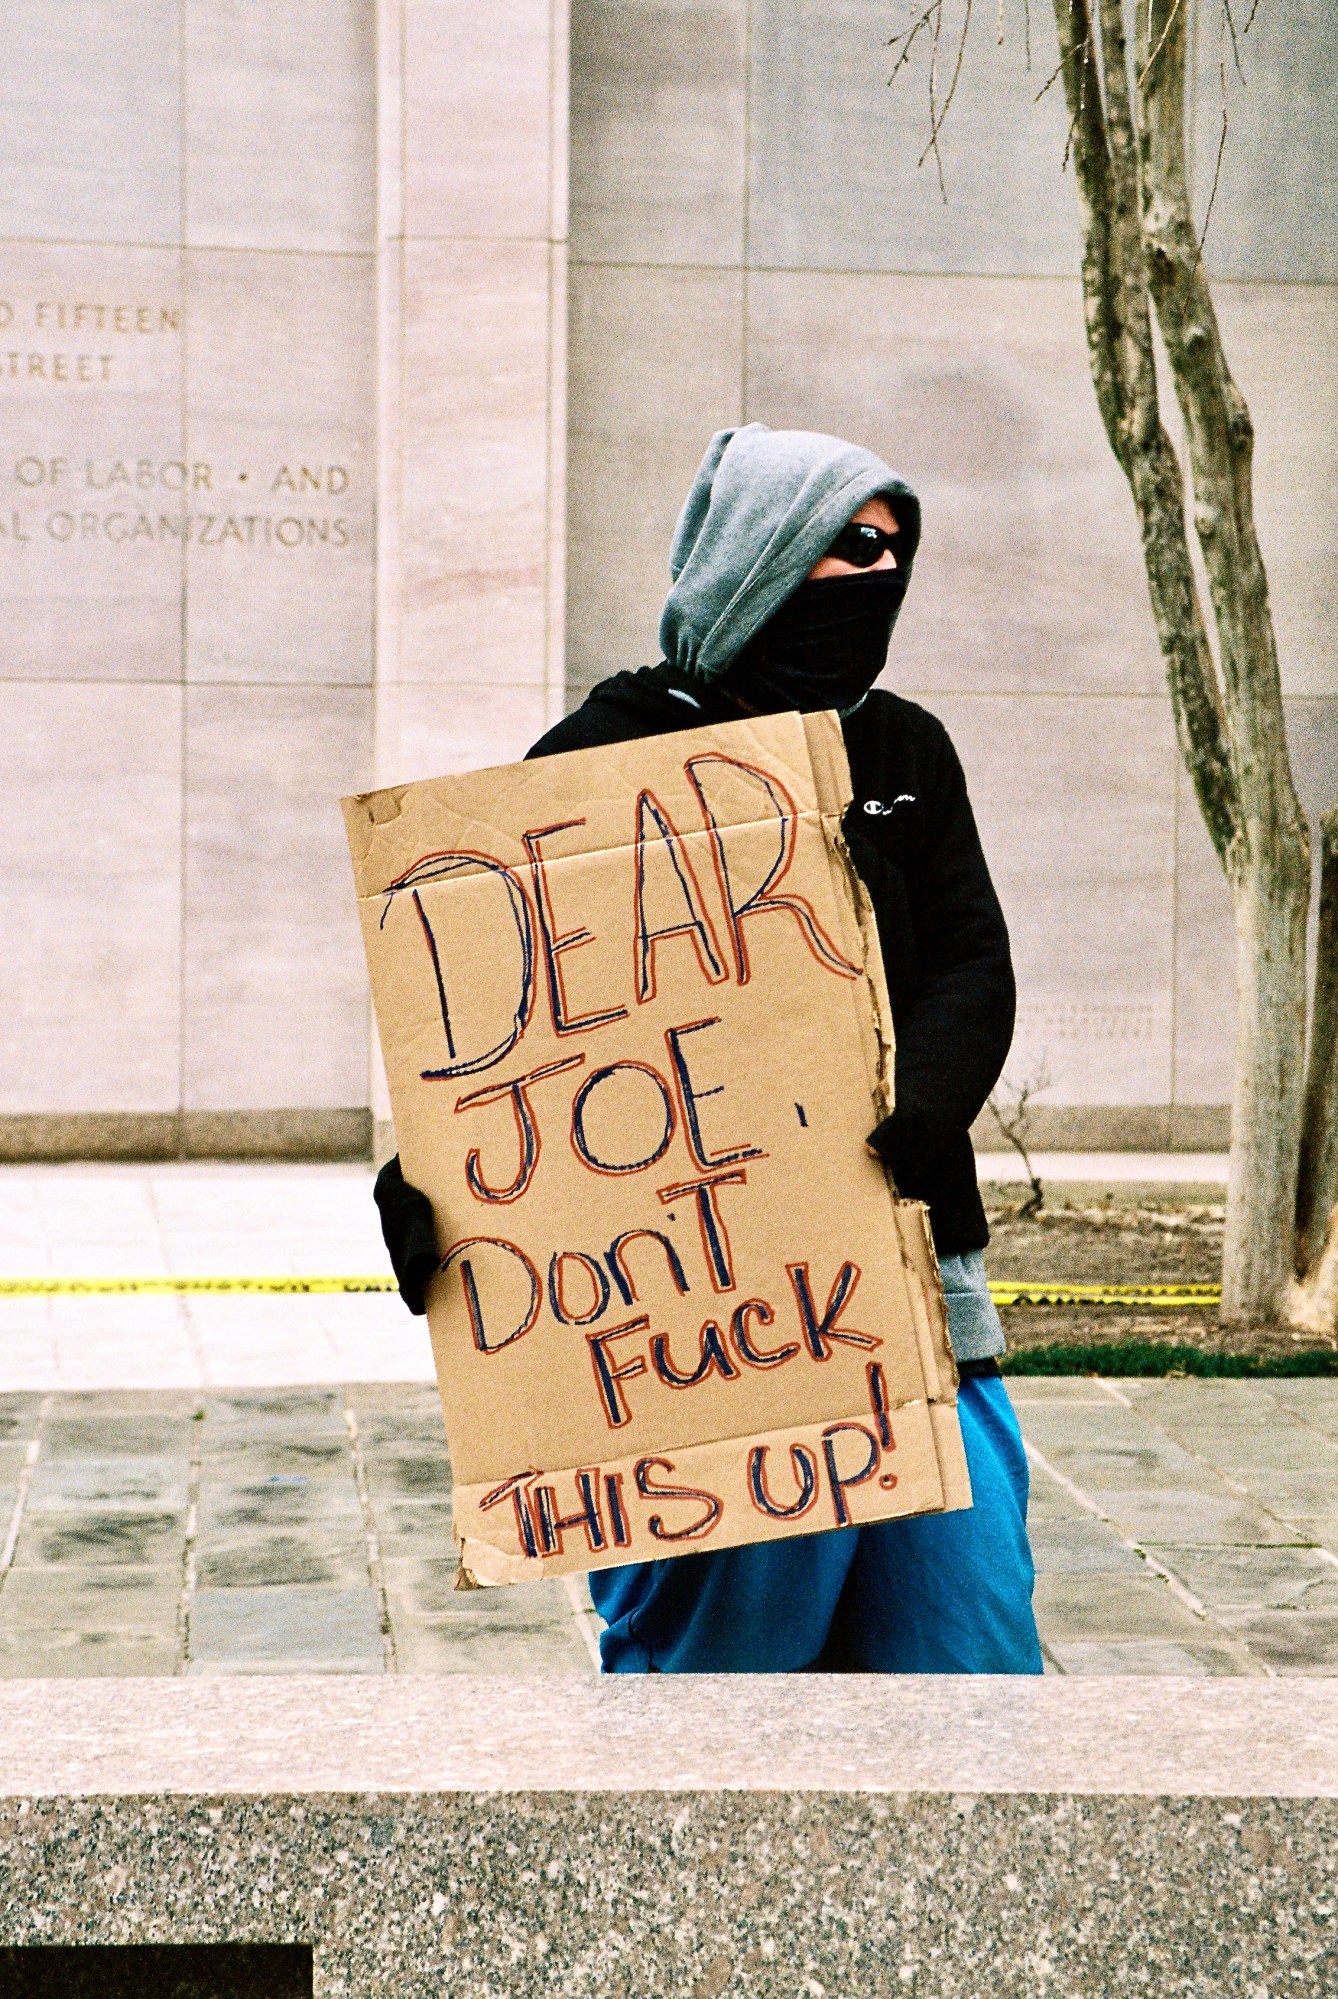 D FIFTEEN
STREET
OF LABOR • AND
AL ORGANIZATIONS
Champion
DEAR
JOE,
Don'T
FucK
THIS UP!